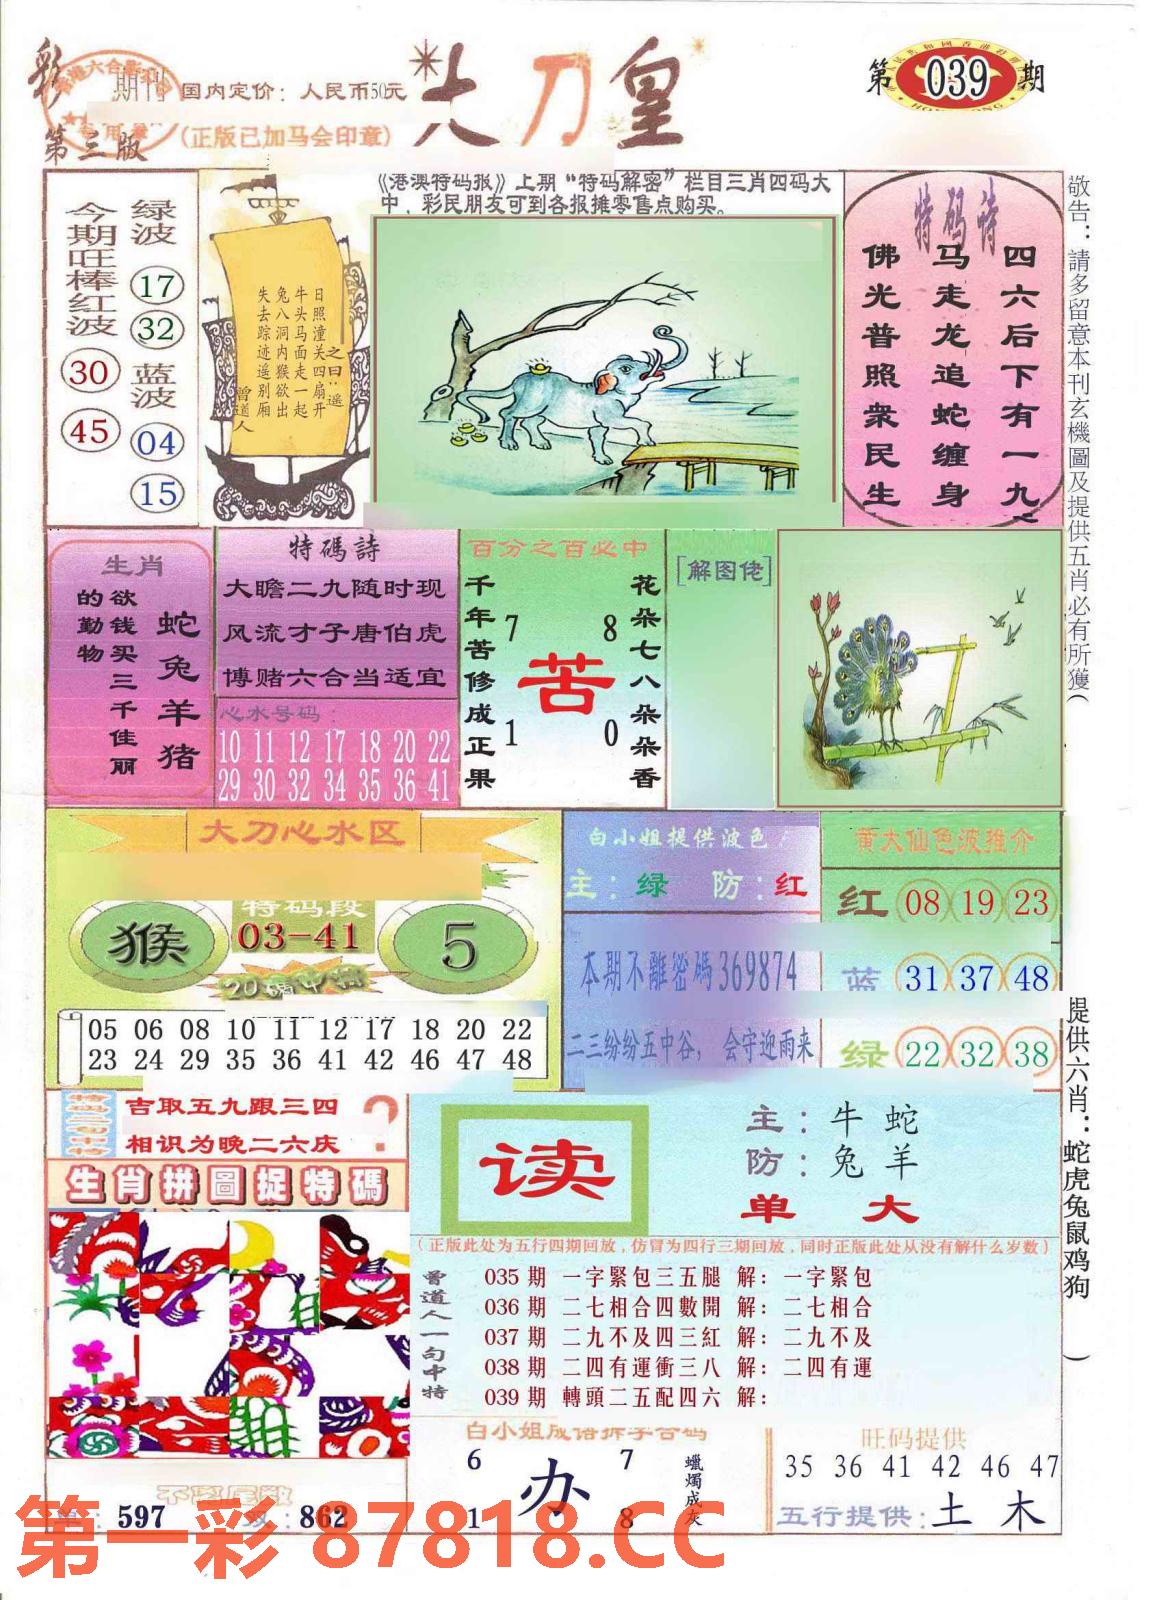 彩
期刊
第三版
国内定价：人民币50元
(正版已加马会印章)
大刀皇
第039期
《港澳特码报》上期“特码解密”栏目三肖四码大
中，彩民朋友可到各报摊零售点购买。
今期旺棒红波
30
45
绿波
17
32
蓝波
04
15
之曰：遥
日照潼关四扇开
牛头马面走一起
兔八洞内猴欲出
失去踪迹遥别厢
曾道人
特码诗
四六后下有一九
马走龙追蛇缠身
佛光普照衆民生
敬告：請多留意本刊玄機圖及提供五肖必有所獲(
提供六肖：蛇虎兔鼠鸡狗 )
生肖
欲钱买三千佳丽
的勤物
蛇兔羊猪
特碼詩
大瞻二九随时现
风流才子唐伯虎
博赌六合当适宜
心水号码：
10 11 12 17 18 20 22
29 30 32 34 35 36 41
百分之百必中
花朵七八朵朵香
千年苦修成正果
7 8
苦
1 0
[解图佬]
大刀心水区
猴
特码段
03-41
5
20碼中特
05 06 08 10 11 12 17 18 20 22
23 24 29 35 36 41 42 46 47 48
白小姐提供波色
主：绿 防：红
本期不離密碼369874
二三纷纷五中谷，会守迎雨来
黄大仙色波推介
红 08 19 23
蓝 31 37 48
绿 22 32 38
吉取五九跟三四
相识为晚二六庆
?
生肖拼圖捉特碼
读
主：牛 蛇
防：兔 羊
单 大
(正版此处为五行四期回放，仿冒为四行三期回放，同时正版此处从没有解什么岁数)
曾道人一句中特
035 期 一字緊包三五腿 解：一字緊包
036 期 二七相合四數開 解：二七相合
037 期 二九不及四三紅 解：二九不及
038 期 二四有運衝三八 解：二四有運
039 期 轉頭二五配四六 解：
白小姐成语拆字合码
6 7
办
1 8
蠟燭成灰
旺码提供
35 36 41 42 46 47
五行提供：土 木
不离尾数
单：597 双：862
第一彩 87818.CC